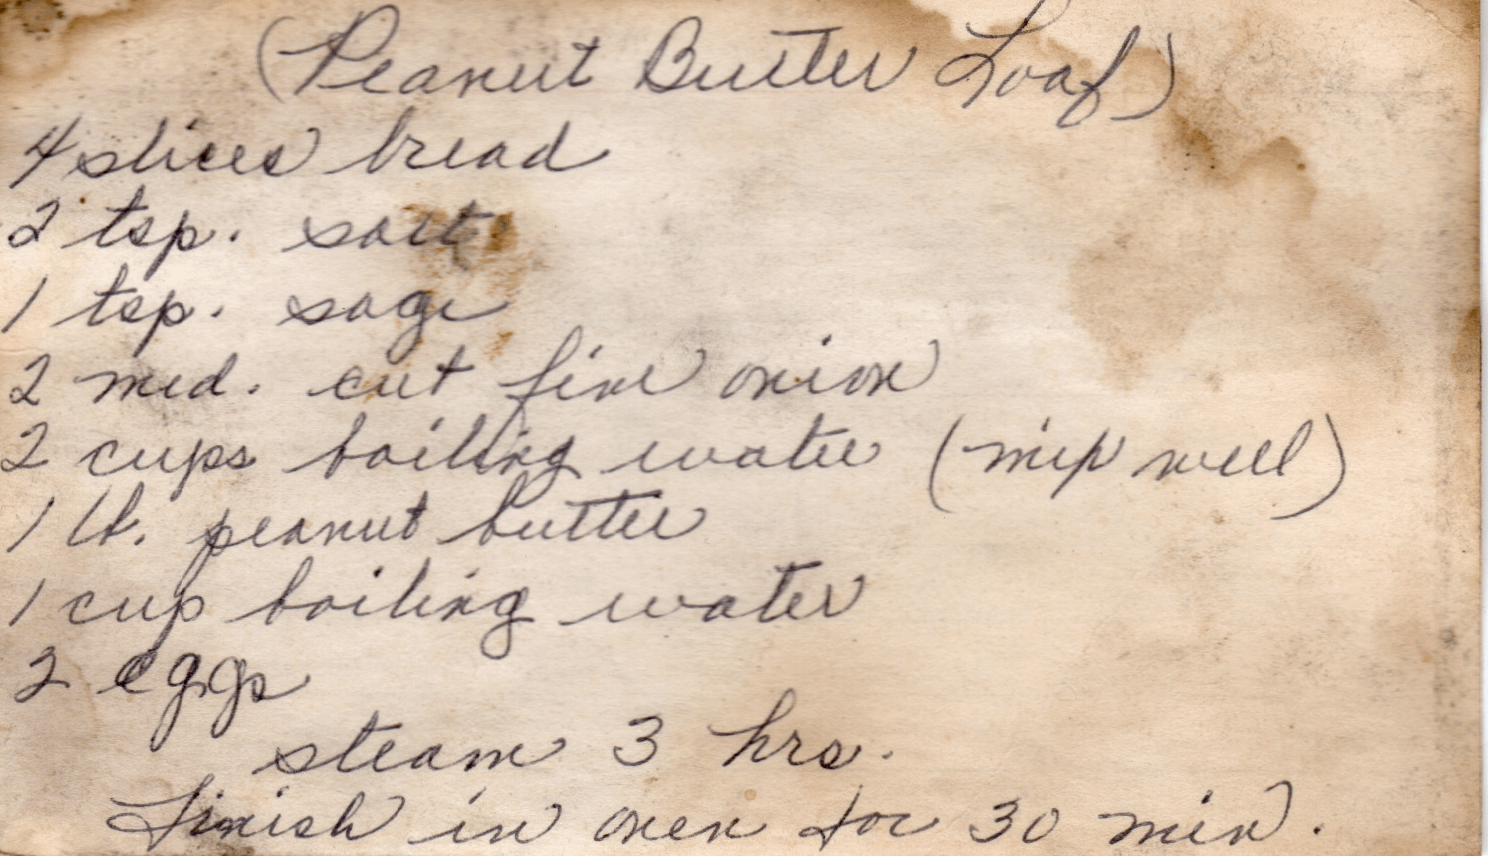 (Peanut Butter Loaf)
4 slices bread
2 tsp. salt
1 tsp. sage
2 med. cut fine onion
2 cups boiling water (mix well)
1 lb. peanut butter
1 cup boiling water
2 eggs
steam 3 hrs.
Finish in oven for 30 min.